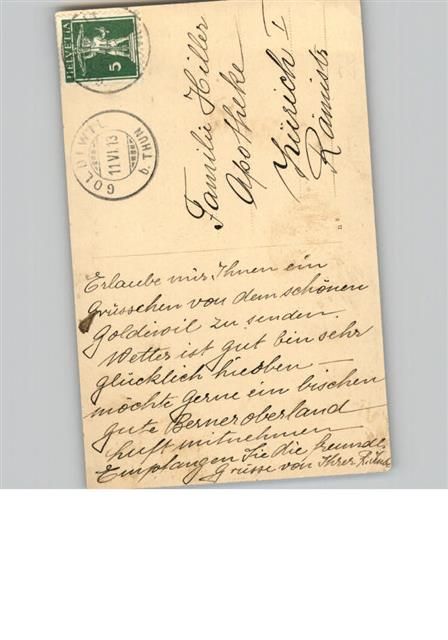 HELVETIA
5
GOLDIWIL
11.VI.13
b. THUN
Familie Hiller
Apotheke
Zürich I
Rämistr
Erlaube mir, Ihnen ein
Grüsschen von dem schönen
Goldiwil zu senden.
Wetter ist gut bin sehr
glücklich hier oben —
möchte gerne ein bischen
gute Berneroberland
luft mitnehmen
Empfangen Sie die freundl.
Grüsse von Ihrer